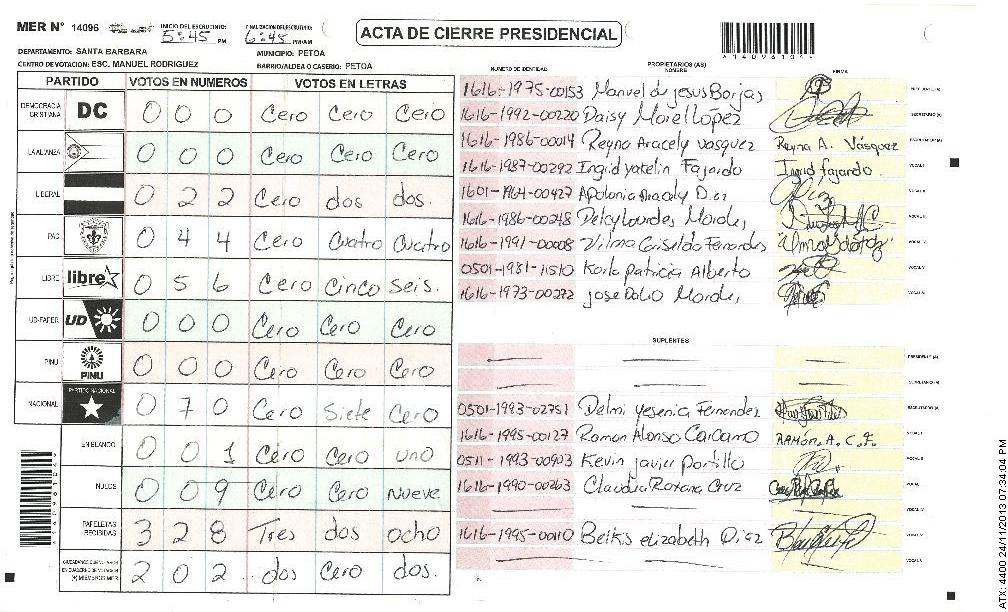 MER N° 14096
INICIO DEL ESCRUTINIO: 5:45 PM
FINALIZACION DEL ESCRUTINIO: 6:45 PM/AM
ACTA DE CIERRE PRESIDENCIAL
DEPARTAMENTO: SANTA BARBARA
MUNICIPIO: PETOA
CENTRO DE VOTACION: ESC. MANUEL RODRIGUEZ
BARRIO/ALDEA O CASERIO: PETOA
PARTIDO VOTOS EN NUMEROS VOTOS EN LETRAS
DEMOCRACIA CRISTIANA DC 0 0 0 Cero Cero Cero
LA ALIANZA 0 0 0 Cero Cero Cero
LIBERAL 0 2 2 Cero dos dos.
PAC 0 4 4 Cero Cuatro Cuatro
LIBRE libre 0 5 6 Cero Cinco seis.
UD-FAPER UD 0 0 0 Cero Cero Cero
PINU PINU 0 0 0 Cero Cero Cero
NACIONAL PARTIDO NACIONAL 0 7 0 Cero Siete Cero
EN BLANCO 0 0 1 Cero Cero uno
NULOS 0 0 9 Cero Cero Nueve
PAPELETAS RECIBIDAS 3 2 8 Tres dos ocho
(+) MIEMBROS MER 2 0 2 dos Cero dos.
NUMERO DE IDENTIDAD PROPIETARIOS (AS) NOMBRE FIRMA
1616-1975-00153 Manuel de jesus Borjas PRESIDENTE (A)
1616-1992-00220 Daisy Mariel López SECRETARIO (A)
1616-1986-00014 Reyna Aracely vasquez Reyna A. Vásquez ESCRUTADOR (A)
1616-1987-00292 Ingrid yatelin Fajardo Ingrid fajardo VOCAL I
1601-1964-00427 Apolonia Aracely Diaz VOCAL II
1616-1986-00248 Delcy Lourdes Morales VOCAL III
1616-1991-00008 Vilma Griselda Fernandes VOCAL IV
0501-1981-11510 Karla patricia Alberto VOCAL V
1616-1973-00272 jose Morales VOCAL VI
SUPLENTES
PRESIDENTE (A)
SECRETARIO (A)
0501-1993-02751 Delmi yesenia Fernandez ESCRUTADOR (A)
1616-1995-00127 Ramon Alonso Carcamo RAMÓN. A. C. F. VOCAL I
0511-1993-00903 Kevin javier portillo VOCAL II
1616-1990-00263 Claudia Roxana Cruz VOCAL III
VOCAL IV
1616-1995-00110 Belkis elizabeth Diaz VOCAL V
VOCAL VI
ATX: 4400 24/11/2013 07:34:04 PM